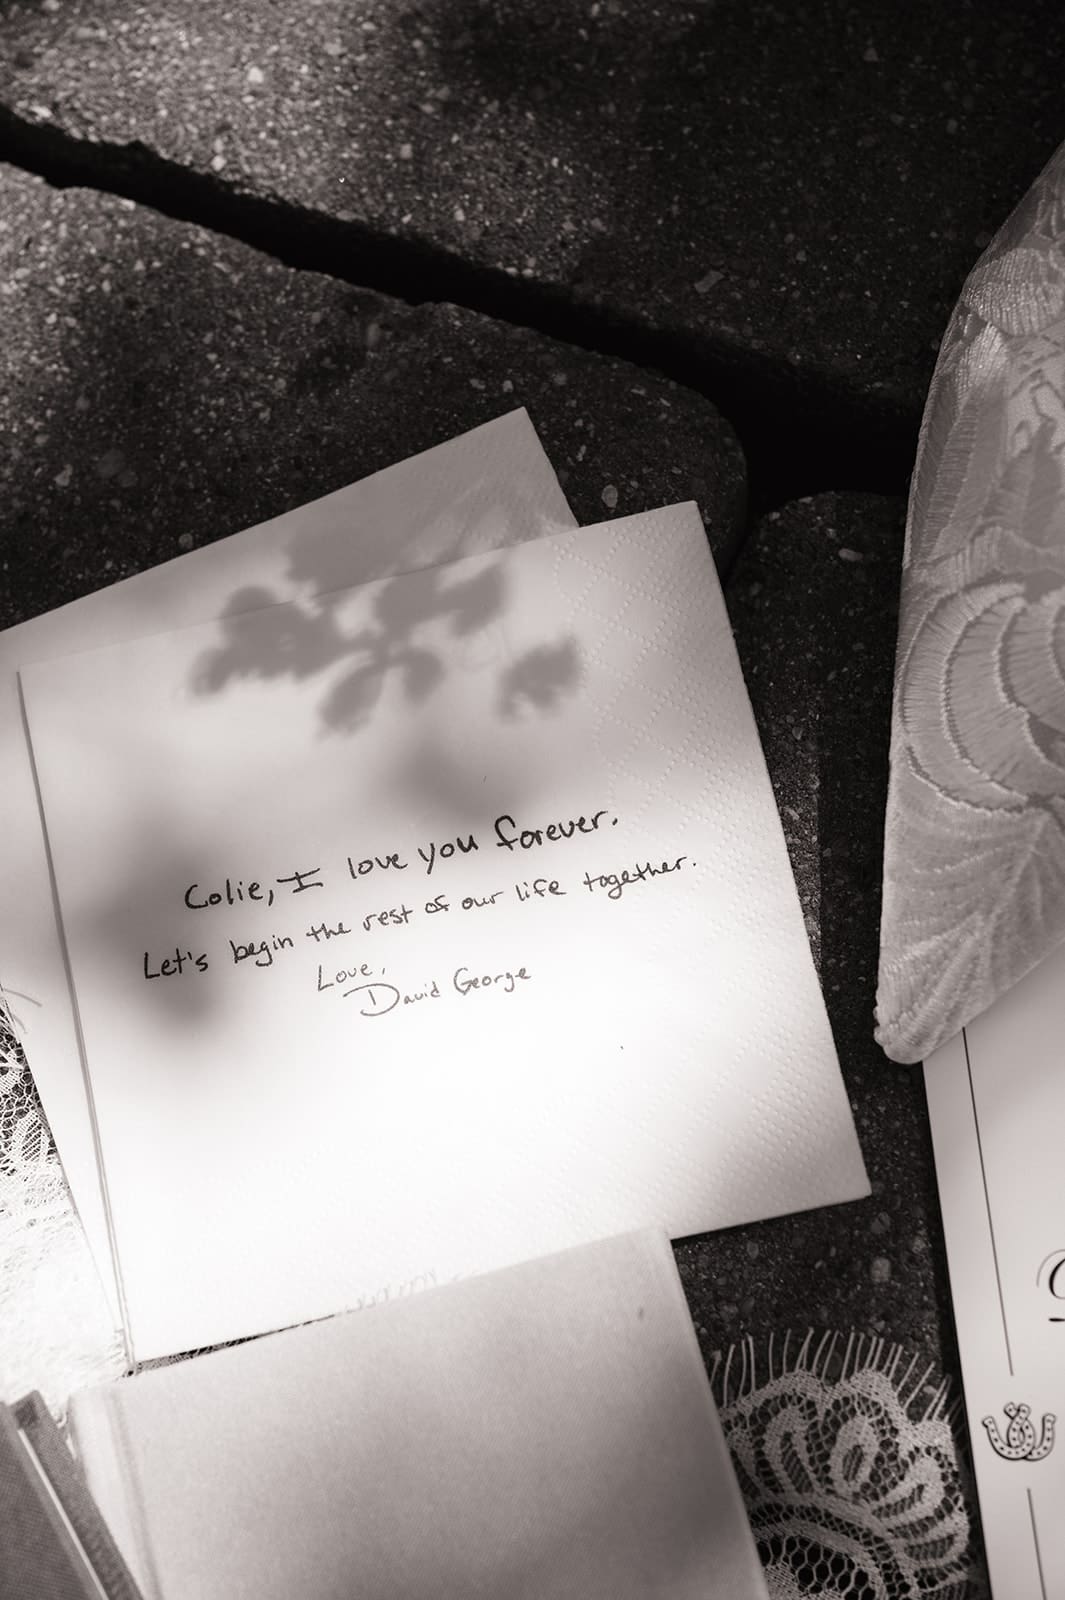 Colie, I love you forever.
Let's begin the rest of our life together.
Love,
David George